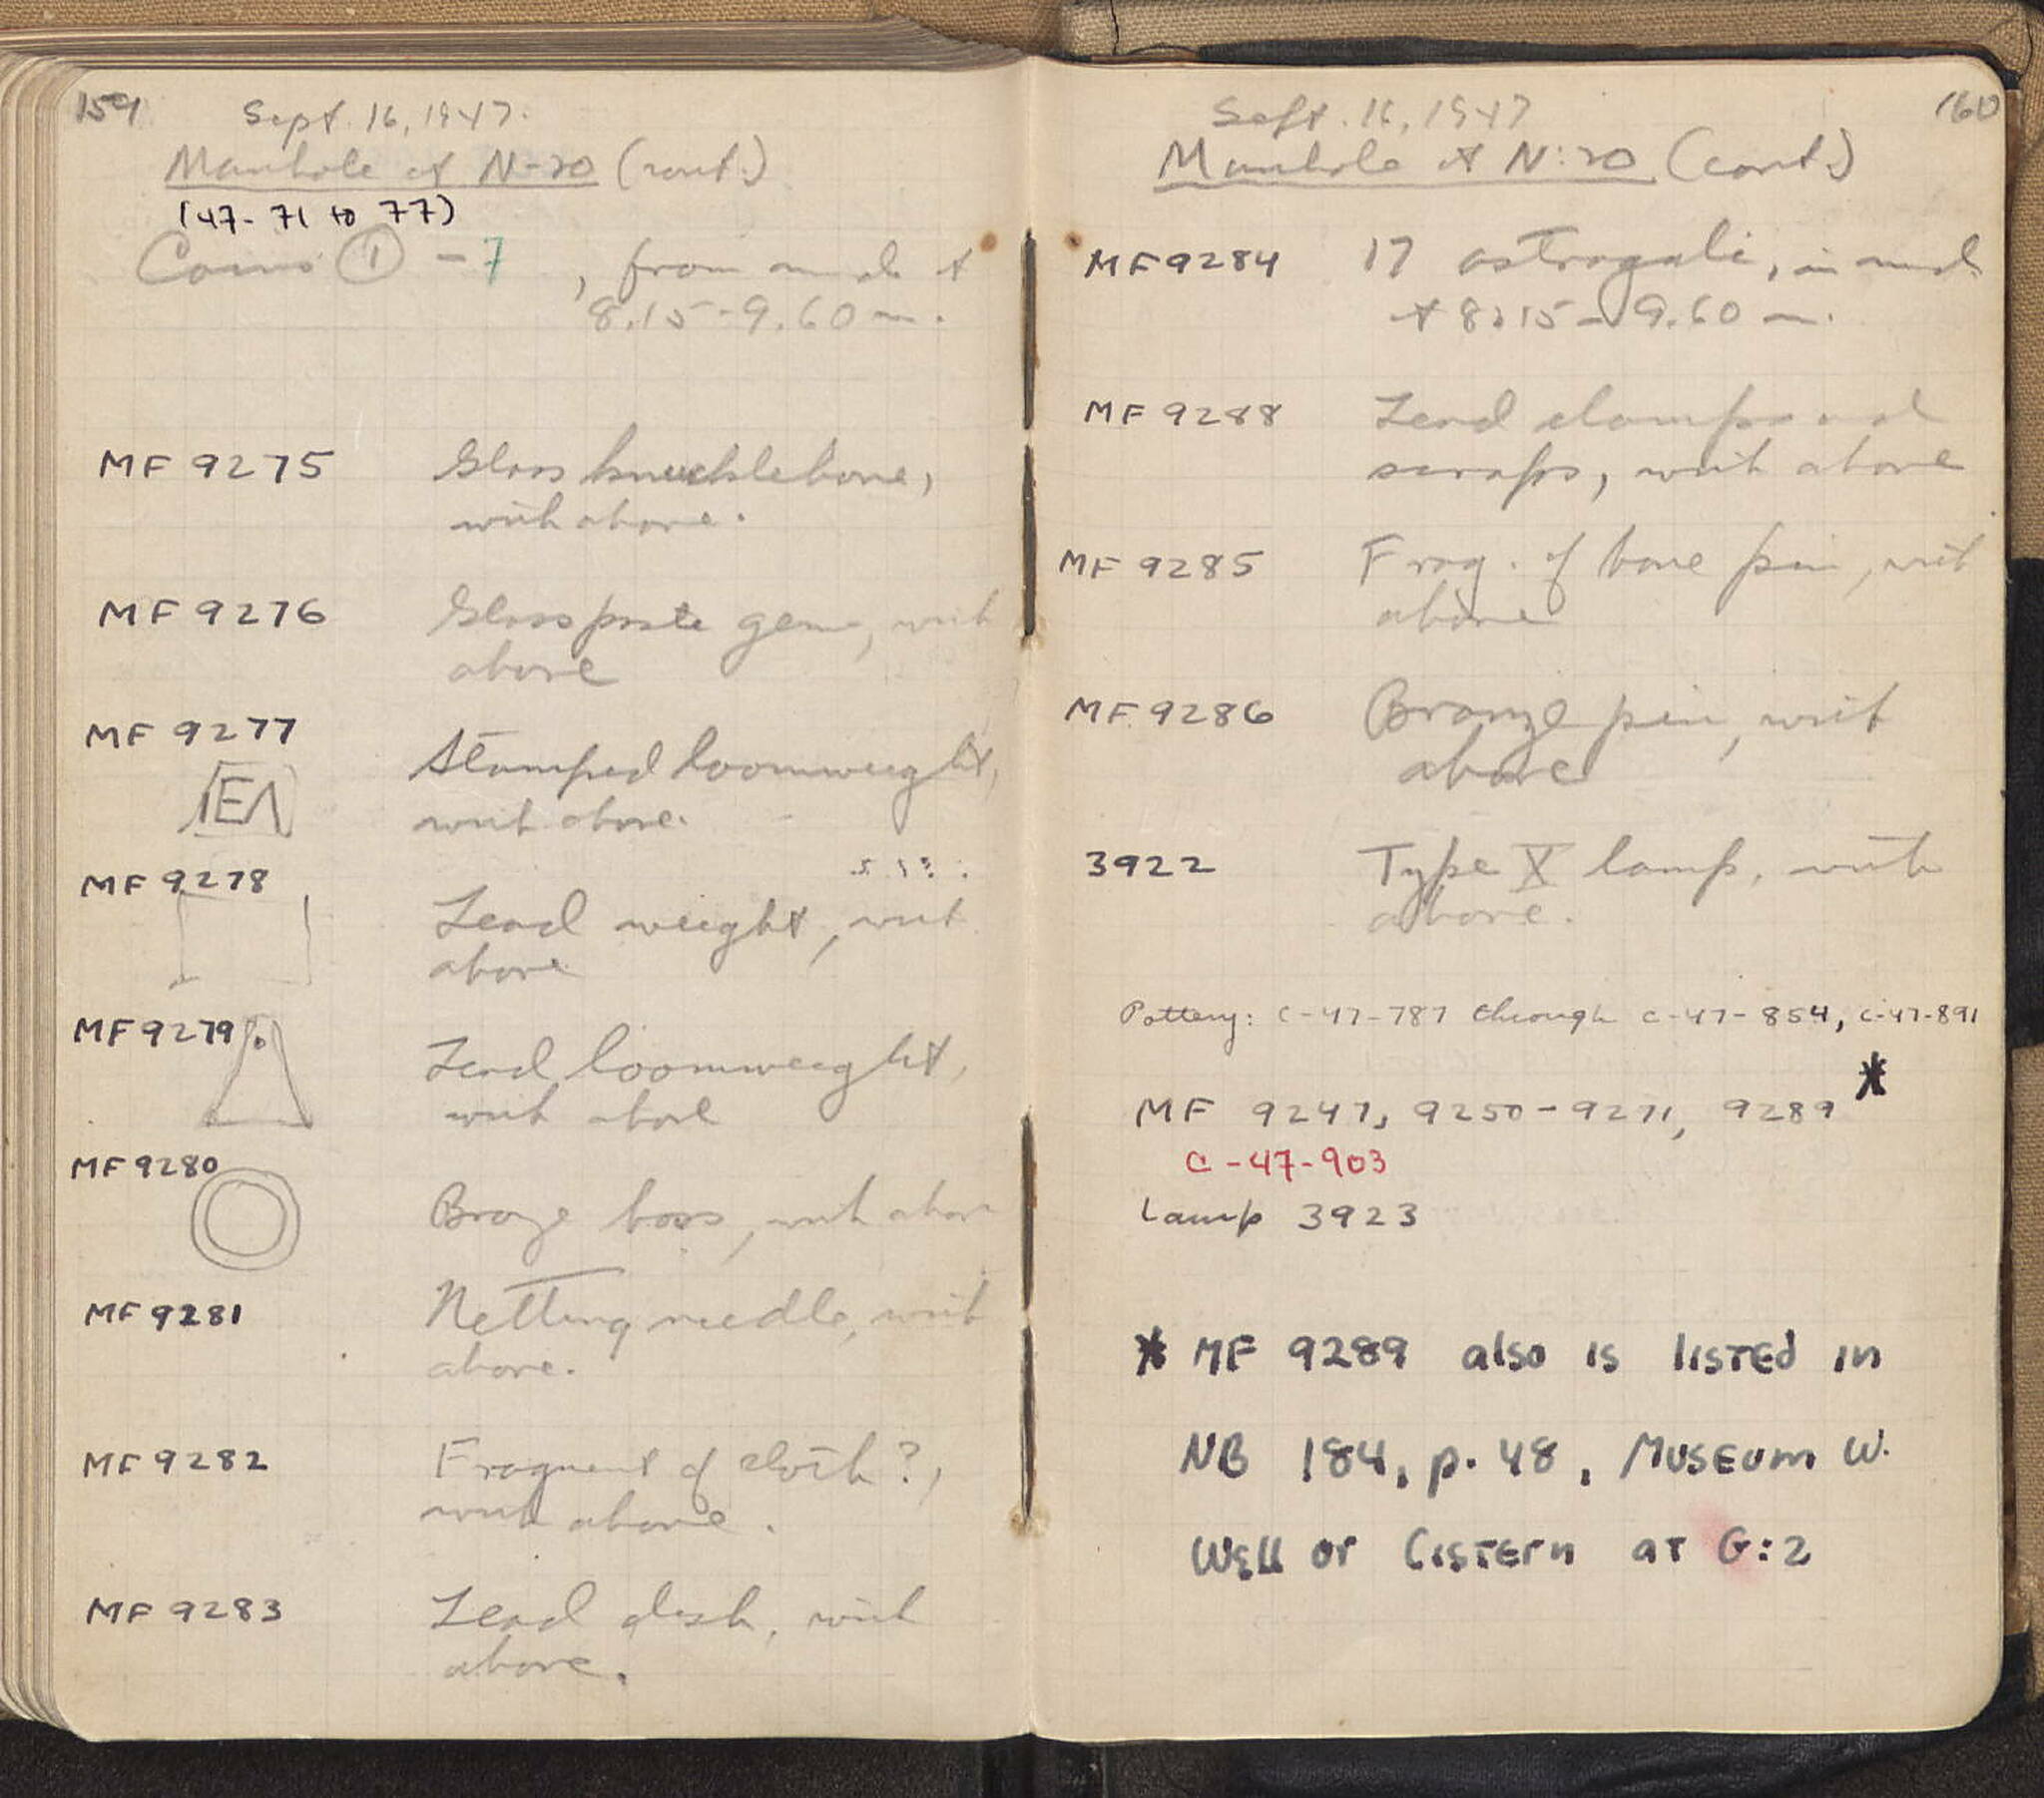 159
Sept. 16, 1947.
Manhole at N-20 (cont.)
(47-71 to 77)
Coins ① - 7 , from mud at
8.15-9.60 m.
MF 9275 Glass knucklebone,
with above.
MF 9276 Glass paste gem, with
above
MF 9277 Stamped loomweight,
with above.
MF 9278 Lead weight, with
above
MF 9279 Lead loomweight,
with above
MF 9280 Bronze boss, with above
MF 9281 Netting needle, with
above.
MF 9282 Fragment of cloth?,
with above.
MF 9283 Lead dish, with
above.
160
Sept. 16, 1947
Manhole at N:20 (cont.)
MF 9284 17 astragali, in mud
at 8.15-9.60 m.
MF 9288 Lead clamps and
scraps, with above
MF 9285 Frag. of bone pin, with
above
MF 9286 Bronze pin, with
above
3922 Type X lamp, with
above.
Pottery: C-47-787 through C-47-854, C-47-891
MF 9247, 9250-9271, 9289 *
C-47-903
Lamp 3923
* MF 9289 also is listed in
NB 184, p. 48, Museum W.
Well or Cistern at G:2